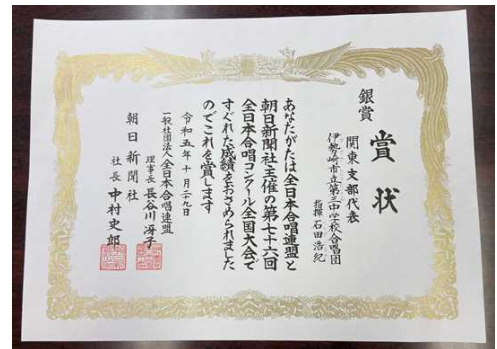 賞状
銀賞
関東支部代表
伊勢崎市立第三中学校合唱団
指揮 石田浩紀
あなたがたは全日本合唱連盟と
朝日新聞社主催の第七十六回
全日本合唱コンクール全国大会で
すぐれた成績をおさめられました
のでこれを賞します
令和五年十月二十九日
一般社団法人全日本合唱連盟
理事長 長谷川冴子
朝日新聞社
社長 中村史郎